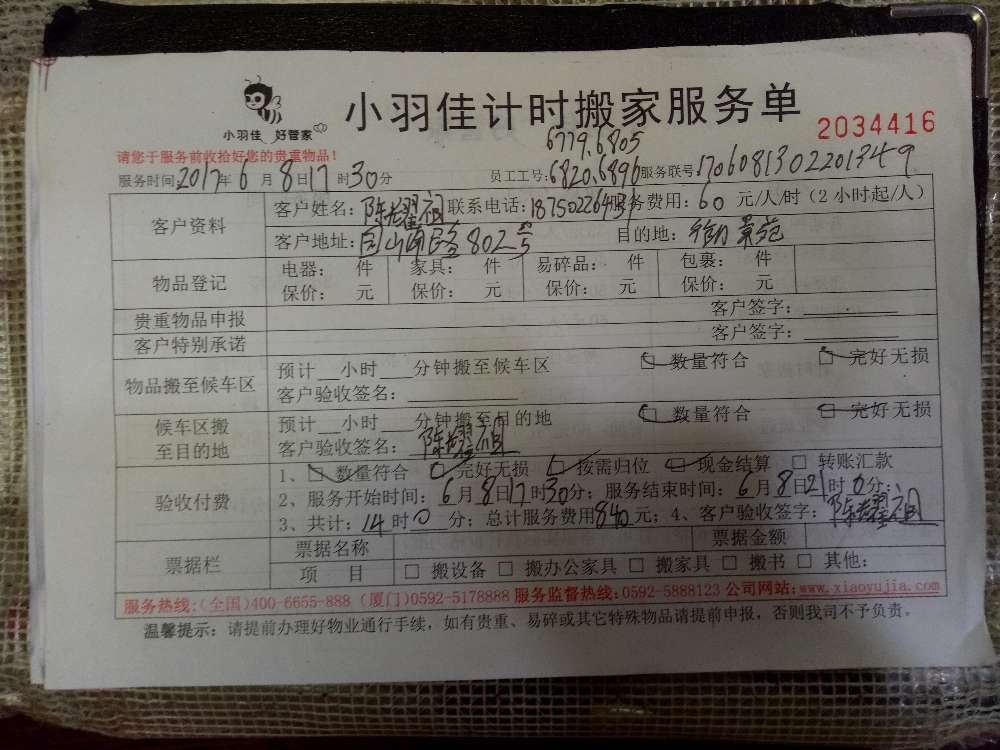 小羽佳计时搬家服务单
小羽佳 好管家
2034416
6779.6805
请您于服务前收拾好您的贵重物品!
服务时间:2017年6月8日17时30分 员工工号:6820.6896 服务联号:1706081302201349
客户资料 客户姓名:陈耀祖 联系电话: 服务费用:60元/人/时(2小时起/人)
客户地址: 802号 目的地: 景苑
物品登记 电器: 件 家具: 件 易碎品: 件 包裹: 件
保价: 元 保价: 元 保价: 元 保价: 元
贵重物品申报 客户签字:
客户特别承诺 客户签字:
物品搬至候车区 预计__小时___分钟搬至候车区 ☑数量符合 ☑完好无损
客户验收签名:
候车区搬至目的地 预计__小时___分钟搬至目的地 ☑数量符合 ☑完好无损
客户验收签名:陈耀祖
验收付费 1、☑数量符合 ☑完好无损 ☑按需归位 ☑现金结算 □转账汇款
2、服务开始时间:6月8日17时30分;服务结束时间:6月8日21时0分;
3、共计:14时0分;总计服务费用840元;4、客户验收签字:陈耀祖
票据栏 票据名称 票据金额
项 目 □搬设备 □搬办公家具 □搬家具 □搬书 □其他:
服务热线:(全国)400-6655-888 (厦门)0592-5178888 服务监督热线:0592-5888123 公司网站:www.xiaoyujia.com
温馨提示:请提前办理好物业通行手续,如有贵重、易碎或其它特殊物品请提前申报,否则我司不予负责。